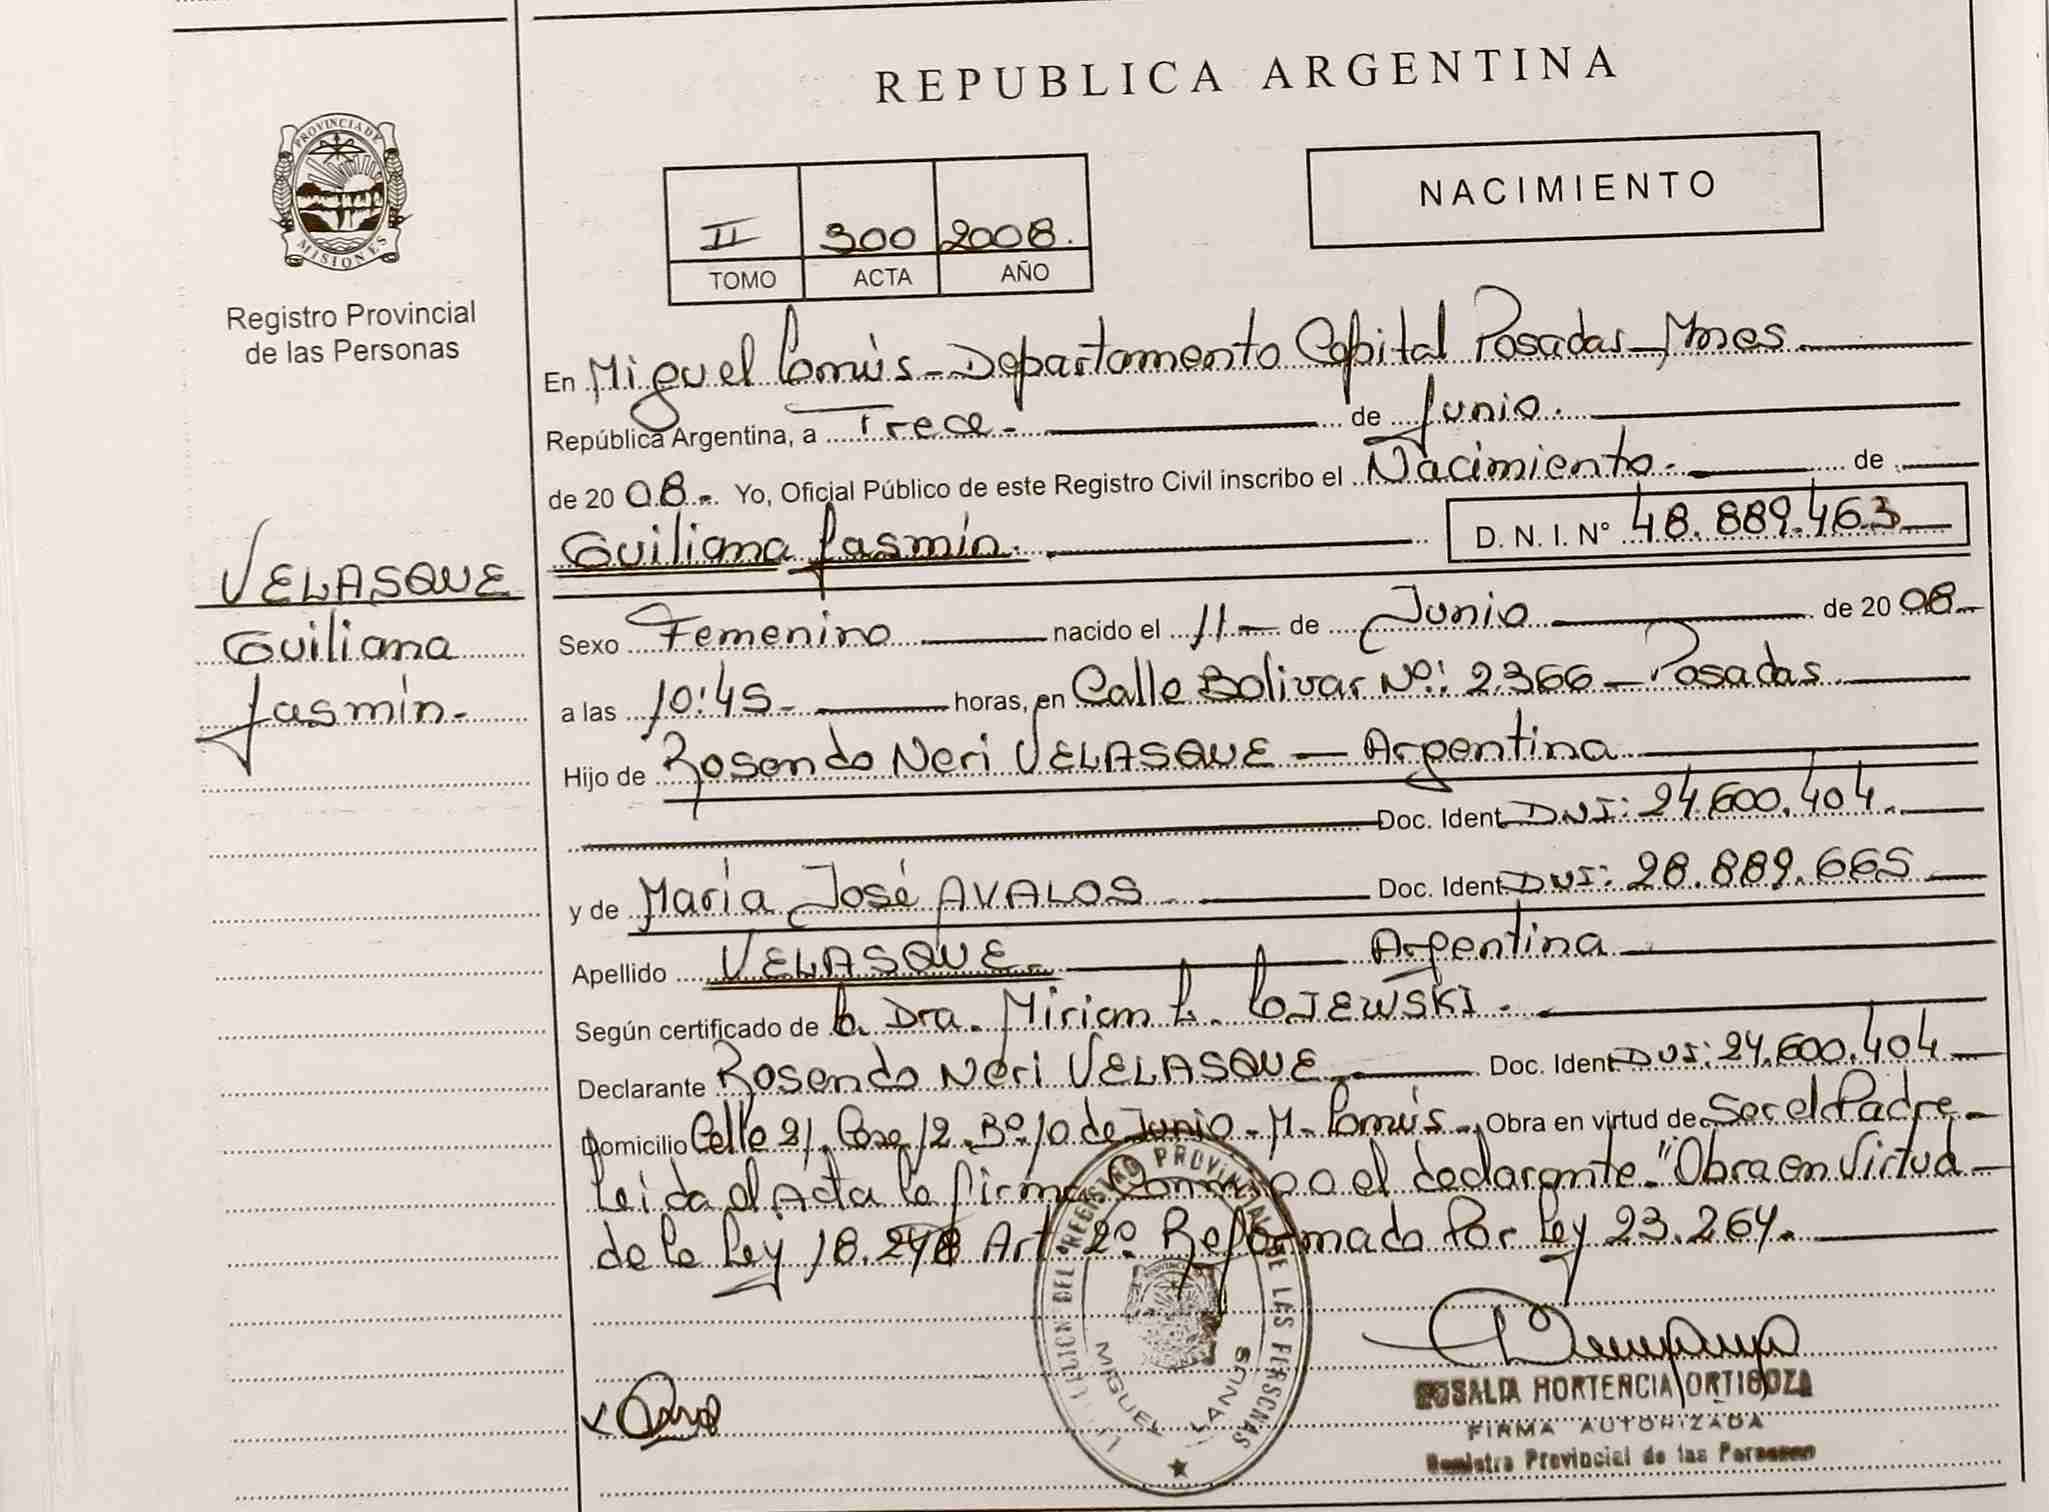 REPUBLICA ARGENTINA
PROVINCIA DE
MISIONES
Registro Provincial
de las Personas
II 300 2008.
TOMO ACTA AÑO
NACIMIENTO
En Miguel Lanús - Departamento Capital Posadas - Mnes
República Argentina, a Trece - de Junio.
de 20 08 - Yo, Oficial Público de este Registro Civil inscribo el Nacimiento - de
Guiliana Jasmín. D. N. I. N° 48.889.463
VELASQUE
Guiliana
Jasmín -
Sexo Femenino nacido el 11 - de Junio de 20 08 -
a las 10:45 - horas, en Calle Bolivar Nº: 2366 - Posadas
Hijo de Rosendo Neri VELASQUE - Argentina
Doc. Ident DNI: 24.600.404.
y de María José AVALOS Doc. Ident DNI: 28.889.665
Apellido VELASQUE - Argentina
Según certificado de la Dra. Miriam L. LOJEWSKI.
Declarante Rosendo Neri VELASQUE Doc. Ident DNI: 24.600.404
Domicilio Calle 21. Casa 12. Bº 10 de Junio - M. Lanús - Obra en virtud de Ser el Padre -
Leida el Acta la firma Conmigo el declarante - "Obra en Virtud
de la Ley 18.248 Art. 2º Reformado Por Ley 23.264.
DEL REGISTRO PROVINCIAL DE LAS PERSONAS
MIGUEL LANUS
ROSALIA HORTENCIA ORTIGOZA
FIRMA AUTORIZADA
Registro Provincial de las Personas